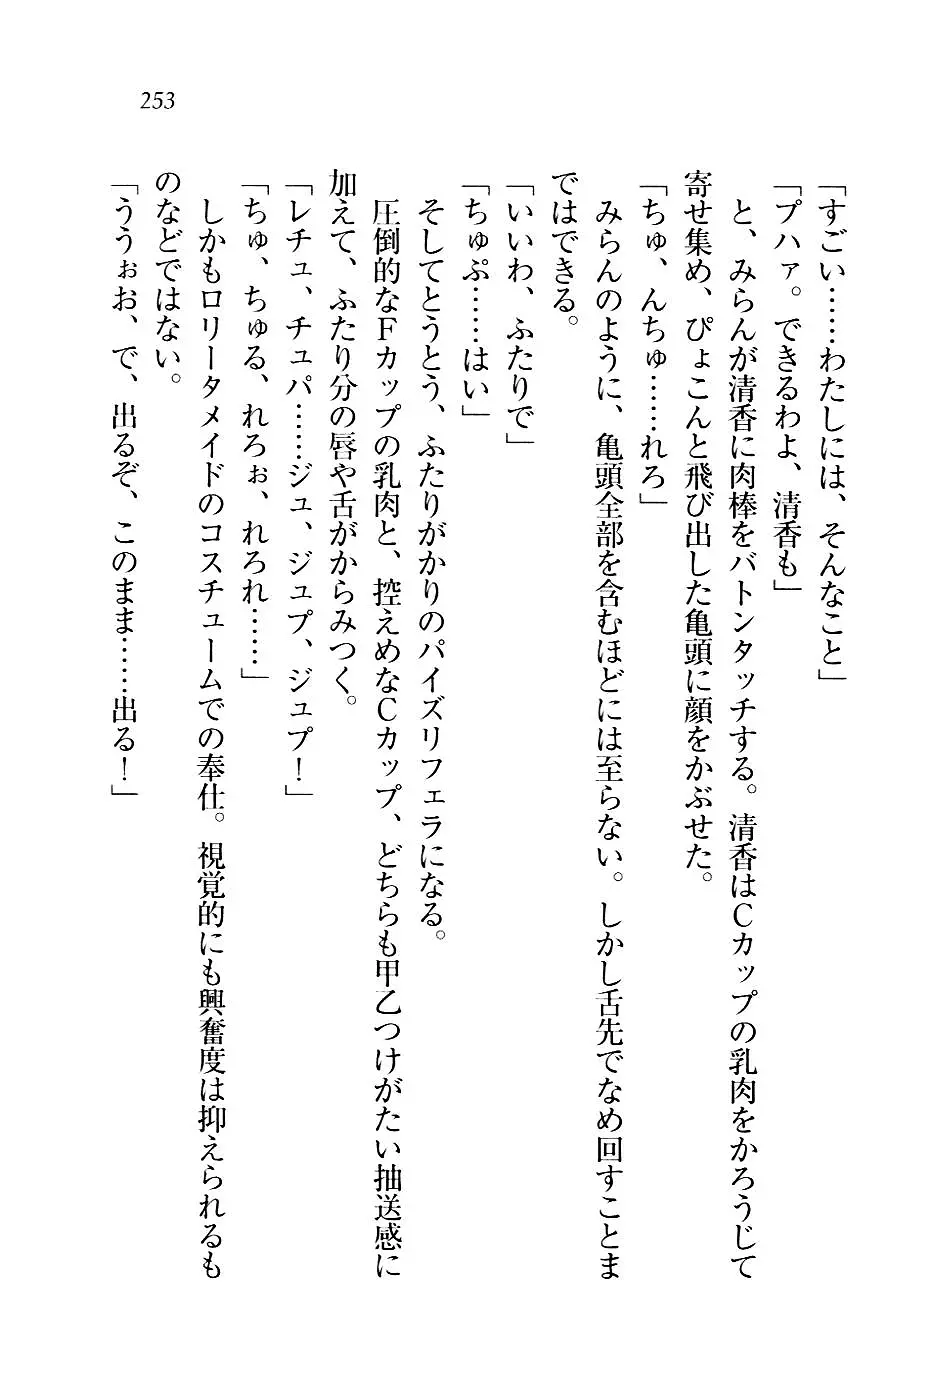 253
「すごい……わたしには、そんなこと」
「プハァ。できるわよ、清香も」
　と、みらんが清香に肉棒をバトンタッチする。清香はCカップの乳肉をかろうじて
寄せ集め、ぴょこんと飛び出した亀頭に顔をかぶせた。
「ちゅ、んちゅ……れろ」
　みらんのように、亀頭全部を含むほどには至らない。しかし舌先でなめ回すことま
ではできる。
「いいわ、ふたりで」
「ちゅぷ……はい」
　そしてとうとう、ふたりがかりのパイズリフェラになる。
　圧倒的なFカップの乳肉と、控えめなCカップ、どちらも甲乙つけがたい抽送感に
加えて、ふたり分の唇や舌がからみつく。
「レチュ、チュパ……ジュ、ジュプ、ジュプ！」
「ちゅ、ちゅる、れろぉ、れろれ……」
　しかもロリータメイドのコスチュームでの奉仕。視覚的にも興奮度は抑えられるも
のなどではない。
「ううぉお、で、出るぞ、このまま……出る！」